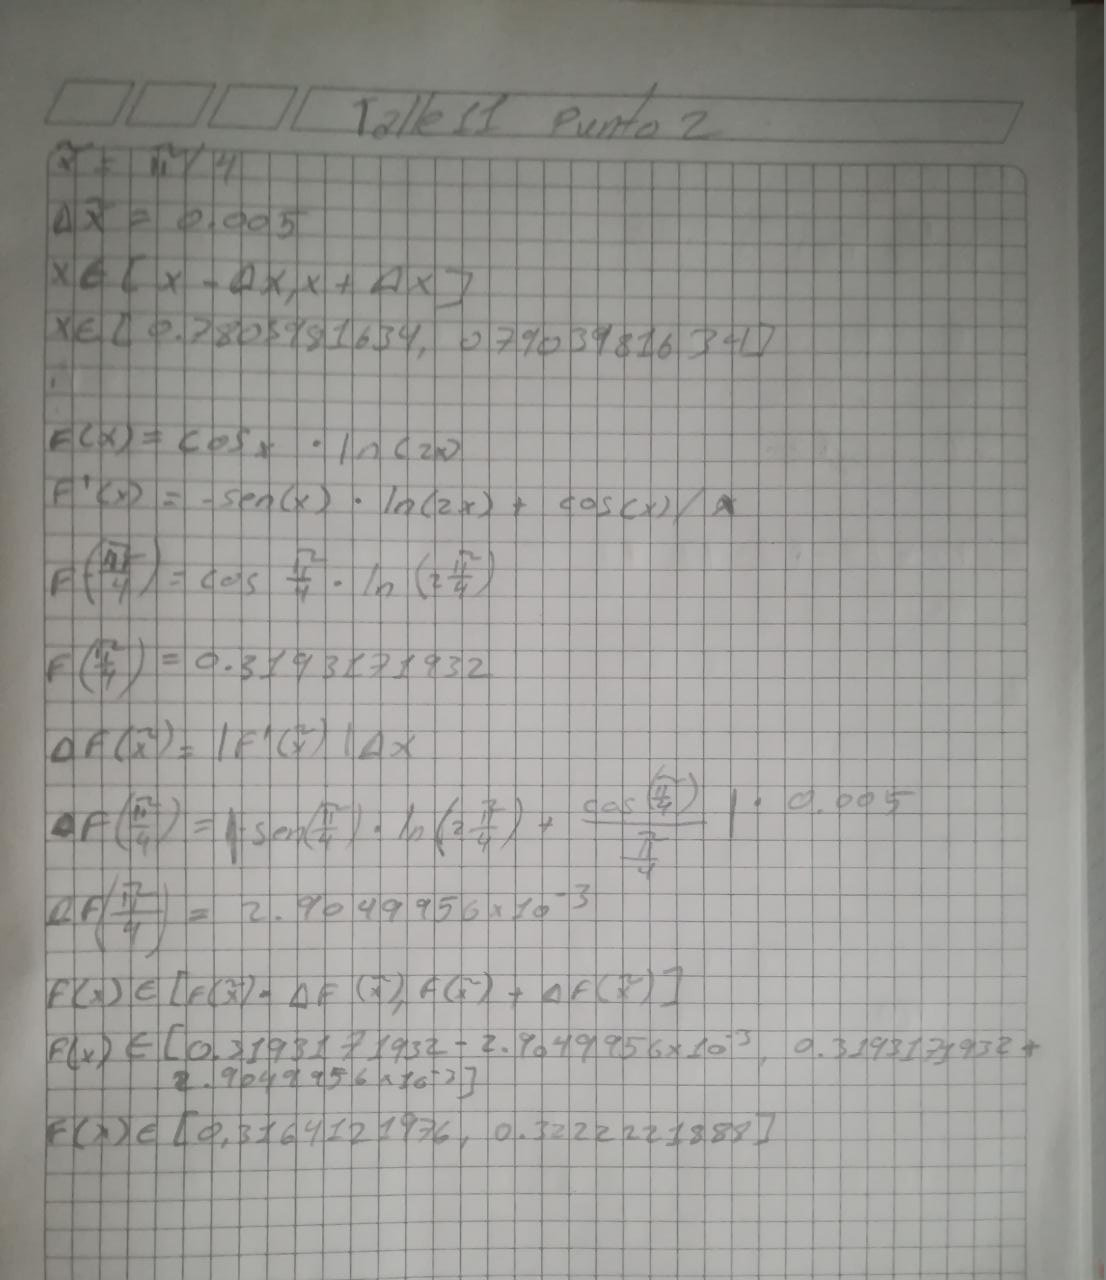 Talle 11 Punto 2
x̃ = π/4
Δx̃ = 0.005
x ∈ [x - Δx, x + Δx]
x ∈ [0.7803981634, 079039816341]
F(x) = cos x · ln(2x)
F'(x) = -sen(x) · ln(2x) + cos(x)/x
F(π/4) = cos π/4 · ln(2 π/4)
F(π/4) = 0.3193171932
ΔF(x̃) = |F'(x̃)|Δx
ΔF(π/4) = |-sen(π/4) · ln(2 π/4) + cos(π/4)/(π/4)| · 0.005
ΔF(π/4) = 2.9049956x10⁻³
F(x) ∈ [F(x̃) - ΔF(x̃), F(x̃) + ΔF(x̃)]
F(x) ∈ [0.3193171932 - 2.9049956x10⁻³, 0.3193171932 +
2.9049956x10⁻³]
F(x) ∈ [0,3164121976, 0.3222221888]